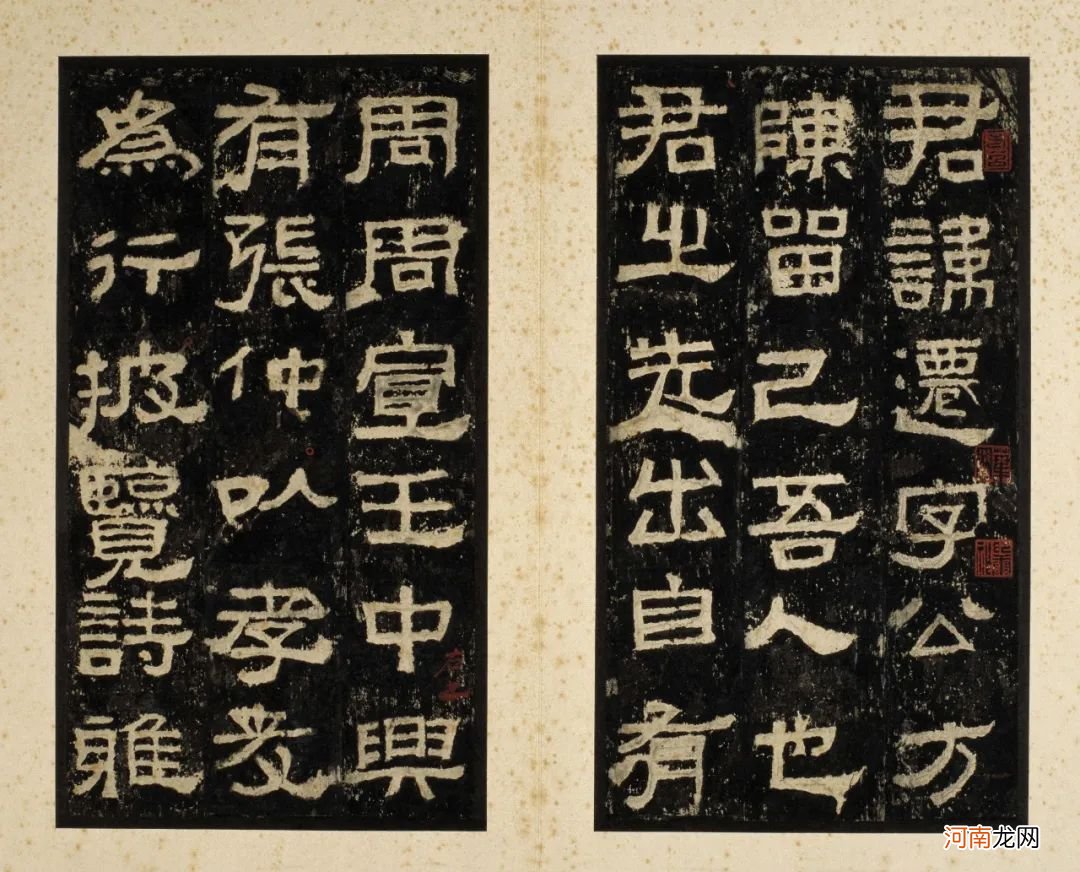 君諱遷字公方
陳留己吾人也
君之先出自有
周周宣王中興
有張仲以孝友
為行披覽詩雅
河南龙网